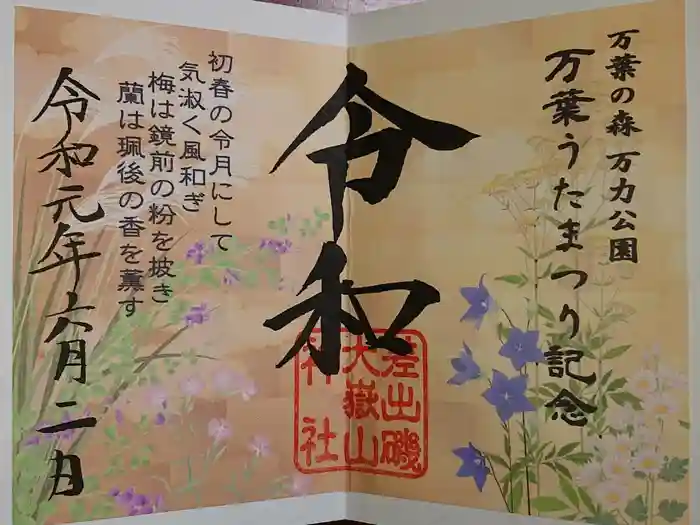 万葉の森 万力公園
万葉うたまつり記念
令和
差出磯
大嶽山
神社
初春の令月にして
気淑く風和ぎ
梅は鏡前の粉を披き
蘭は珮後の香を薫す
令和元年六月二日